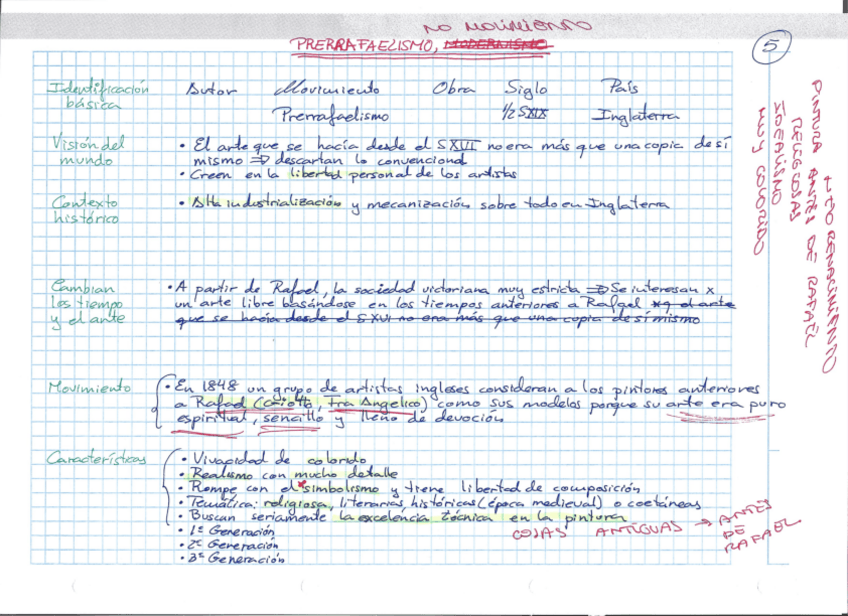 NO MOVIMIENTO
PRERRAFAELISMO, MODERNISMO
5
Identificación básica
Autor Movimiento Obra Siglo País
Prerrafaelismo 1/2 SXIX Inglaterra
Visión del mundo
• El arte que se hacía desde el SXVI no era más que una copia de sí
mismo => descartan lo convencional
• Creen en la libertad personal de los artistas
Contexto histórico
• Alta industrialización y mecanización sobre todo en Inglaterra
Cambian los tiempo y el arte
• A partir de Rafael, la sociedad victoriana muy estricta => Se interesan x
un arte libre basándose en los tiempos anteriores a Rafael xq el arte
que se hacía desde el SXVI no era más que una copia de sí mismo
Movimiento
• En 1848 un grupo de artistas ingleses consideran a los pintores anteriores
a Rafael (Giotto, Fra Angelico) como sus modelos porque su arte era puro
espiritual, sencillo y lleno de devoción
Características
• Vivacidad de colorido
• Realismo con mucho detalle
• Rompe con el simbolismo y tiene libertad de composición
• Temática: religiosa, literarias, históricas (época medieval) o coetáneas
• Buscan seriamente la excelencia técnica en la pintura
• 1ª Generación
• 2ª Generación
• 3ª Generación
COSAS ANTIGUAS → ANTES
DE
RAFAEL
NTO RENACIMIENTO
PINTURA ANTES DE RAFAEL
RELIGIOSAS
IDEALISMO
MUY COLORIDO